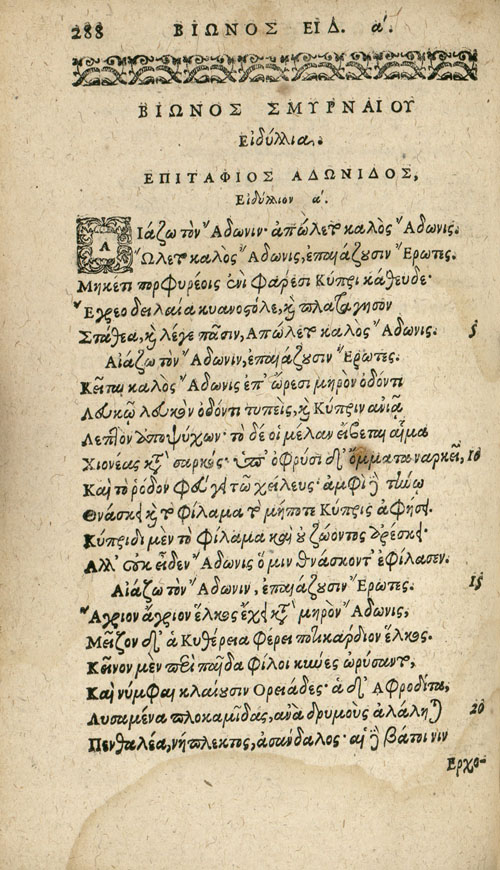 288 ΒΙΩΝΟΣ ΕΙΔ. α΄.
ΒΙΩΝΟΣ ΣΜΥΡΝΑΙΟΥ
Εἰδύλλια.
ΕΠΙΤΑΦΙΟΣ ΑΔΩΝΙΔΟΣ,
Εἰδύλλιον α΄.
ΑΙάζω τὸν Ἄδωνιν· ἀπώλετο καλὸς Ἄδωνις.
Ὤλετο καλὸς Ἄδωνις, ἐπαιάζουσιν Ἔρωτες.
Μηκέτι πορφυρέοις ἐνὶ φάρεσι Κύπρι κάθευδε·
Ἔγρεο δειλαία κυανοστόλε, καὶ πλατάγησον
Στάθεα, καὶ λέγε πᾶσιν, Ἀπώλετο καλὸς Ἄδωνις. 5
Αἰάζω τὸν Ἄδωνιν, ἐπαιάζουσιν Ἔρωτες.
Κεῖται καλὸς Ἄδωνις ἐπ' ὤρεσι μηρὸν ὀδόντι
Λευκῷ λευκὸν ὀδόντι τυπεὶς, καὶ Κύπριν ἀνιᾷ
Λεπτὸν ἀποψύχων· τὸ δέ οἱ μέλαν εἴβεται αἷμα
Χιονέας κατὰ σαρκός· ὑπ' ὀφρύσι δ' ὄμματα ναρκεῖ, 10
Καὶ τὸ ῥόδον φεύγει τῶ χείλευς· ἀμφὶ δὲ τήνῳ
Θνάσκει καὶ τὸ φίλαμα τὸ μήποτε Κύπρις ἀφήσει.
Κύπριδι μὲν τὸ φίλαμα καὶ οὐ ζώοντος ἀρέσκει·
Ἀλλ' οὐκ οἶδεν Ἄδωνις ὅ μιν θνάσκοντ' ἐφίλασεν.
Αἰάζω τὸν Ἄδωνιν, ἐπαιάζουσιν Ἔρωτες. 15
Ἄγριον ἄγριον ἕλκος ἔχει κατὰ μηρὸν Ἄδωνις,
Μεῖζον δ' ἁ Κυθέρεια φέρει ποτικάρδιον ἕλκος.
Κεῖνον μὲν περὶ παῖδα φίλοι κύνες ὠρύσαντο,
Καὶ νύμφαι κλαίουσιν Ὀρειάδες· ἁ δ' Ἀφροδίτα,
Λυσαμένα πλοκαμῖδας, ἀνὰ δρυμοὺς ἀλάληται 20
Πενθαλέα, νήπλεκτος, ἀσάνδαλος· αἱ δὲ βάτοι νιν
Ἐρχο-